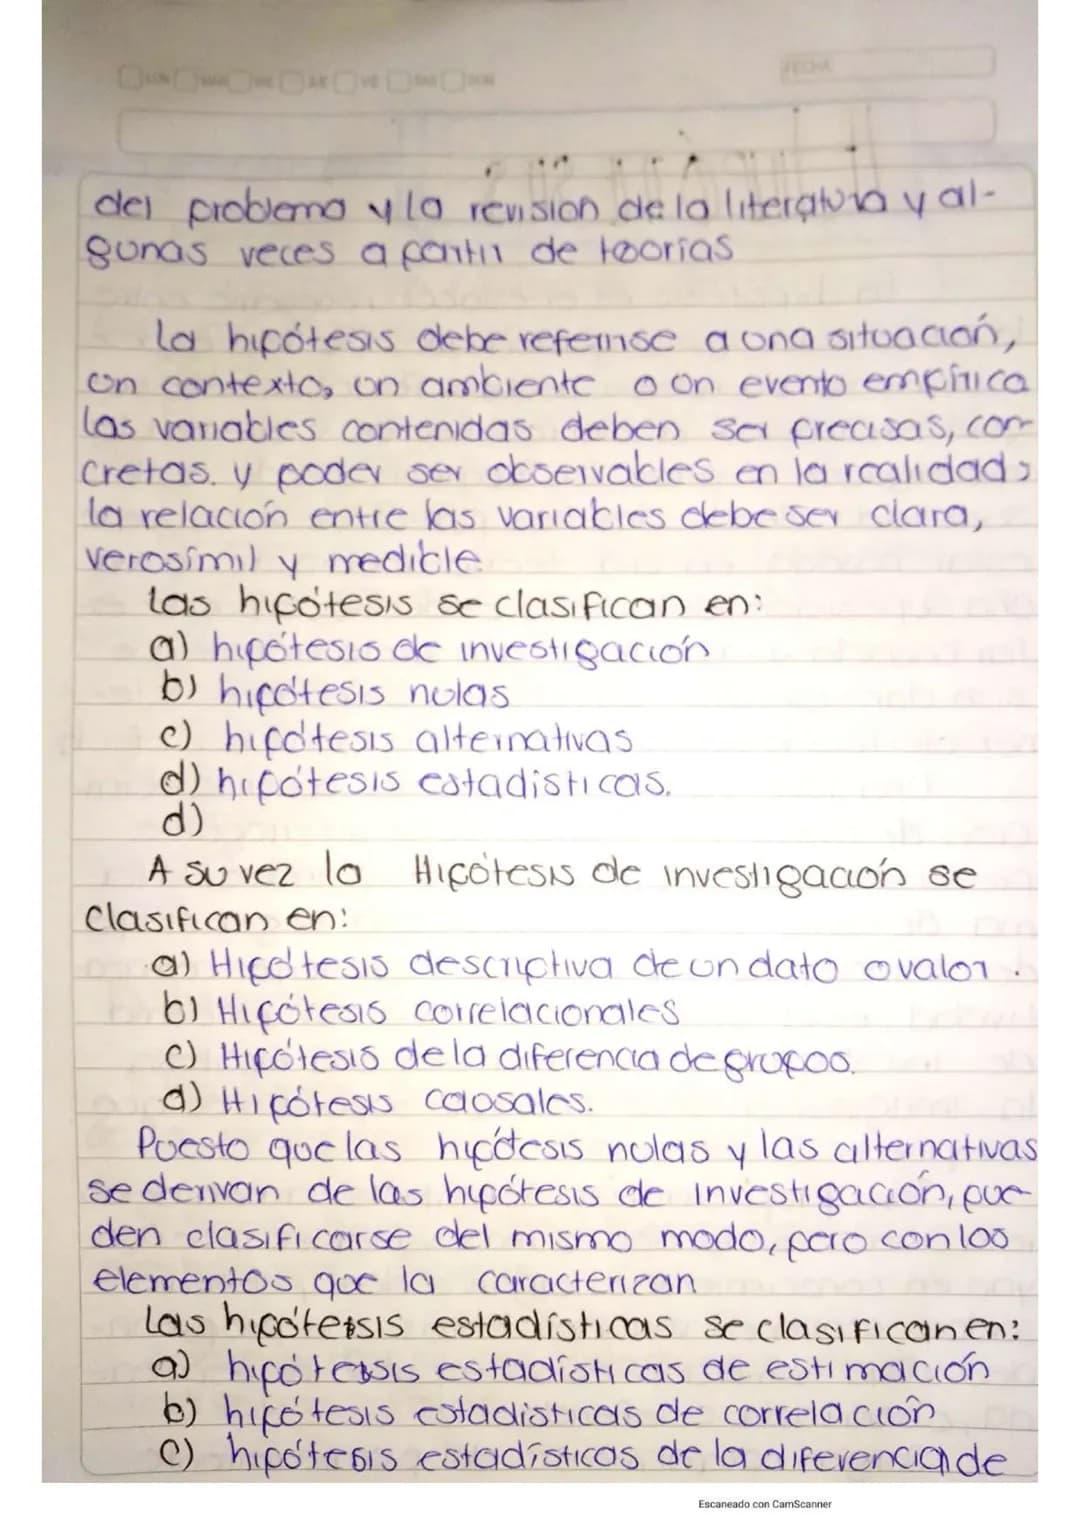 LUN MAR MIE JUE VIE SAB DOM FECHA
del problema y la revision de la literatura y al-
gunas veces a partir de teorias
La hipótesis debe referirse a una situación,
un contexto, un ambiente o un evento empírica
Las variables contenidas deben ser precisas, con-
cretas. y poder ser observables en la realidad;
la relación entre las variables debe ser clara,
verosímil y medible
Las hipótesis se clasifican en:
a) hipótesis de investigación
b) hipótesis nulas
c) hipótesis alternativas
d) hipótesis estadisticas.
d)
A su vez la Hipótesis de investigación se
clasifican en:
a) Hipótesis descriptiva de un dato o valor.
b) Hipótesis correlacionales
c) Hipótesis de la diferencia de grupos.
d) Hipótesis causales.
Puesto que las hipótesis nulas y las alternativas
se derivan de las hipótesis de investigación, pue-
den clasificarse del mismo modo, pero con los
elementos que la caracterizan
Las hipótesis estadísticas se clasifican en:
a) hipótesis estadísticas de estimación
b) hipótesis estadisticas de correlación
c) hipótesis estadísticas de la diferencia de
Escaneado con CamScanner